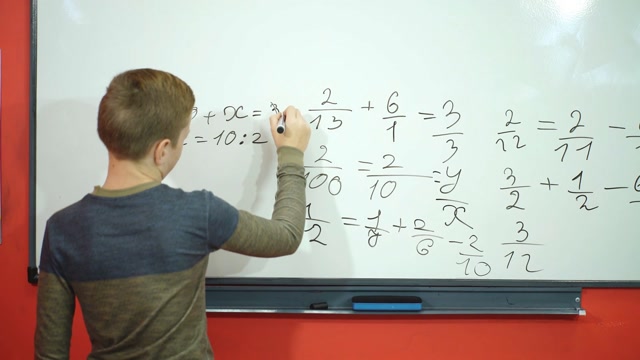 + x =
= 10 : 2
2/13 + 6/1 = 3/3
2/100 = 2/10 = y/x
1/2 = 1/y + 2/6 - 2/10
2/12 = 2/11 -
3/2 + 1/2 - 6
3/12